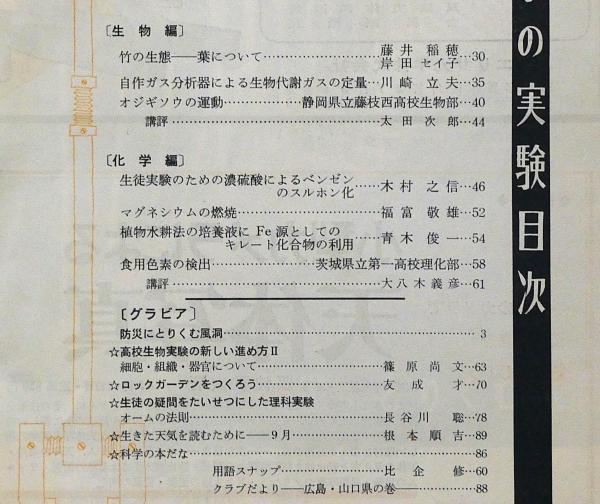 の実験目次
〔生物編〕
竹の生態――葉について…………………藤井稲穂 岸田セイ子…30
自作ガス分析器による生物代謝ガスの定量…川崎立夫…35
オジギソウの運動………………静岡県立藤枝西高校生物部…40
講評……………………………太田次郎…44
〔化学編〕
生徒実験のための濃硫酸によるベンゼン
のスルホン化……木村之信…46
マグネシウムの燃焼……………………福富敬雄…52
植物水耕法の培養液に Fe 源としての
キレート化合物の利用……青木俊一…54
食用色素の検出………………茨城県立第一高校理化部…58
講評……………………………大八木義彦…61
〔グラビア〕
防災にとりくむ風洞………………………………… 3
☆高校生物実験の新しい進め方Ⅱ
細胞・組織・器官について………………篠原尚文…63
☆ロックガーデンをつくろう………………友成才…70
☆生徒の疑問をたいせつにした理科実験
オームの法則………………………長谷川聡…78
☆生きた天気を読むために――9月…………根本順吉…89
☆科学の本だな……………………………………86
用語スナップ………………比企修…60
クラブだより――広島・山口県の巻――………88